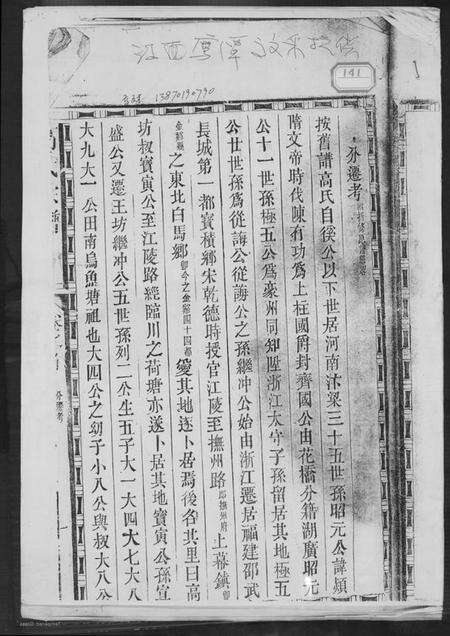 江西鹰潭
13870190790
141
分遷考
按舊譜高氏自後公以下世居河南汴梁三十五世孫昭元公諱熲
隋文帝時伐陳有功爲上柱國爵封齊國公由花橋分籍湖廣昭元
公十一世孫極五公爲豪州同知陞浙江太守子孫留居其地極五
公廿世孫爲從誨公從誨公之孫繼冲公始由浙江遷居福建邵武
長城第一都寶積鄉宋乾德時授官江陵至撫州路即撫州府上幕鎮即
金谿縣之東北白馬鄉即今之金谿四十四都愛其地遂卜居焉後名其里曰高
坊叔寶寅公至江陵路經臨川之荷塘亦遂卜居其地寶寅公孫宣
盛公又遷王坊繼冲公五世孫列二公生五子大一大四大七大八
大九大一公田南烏魚塘祖也大四公之幼子小八公與叔大八公
分遷考